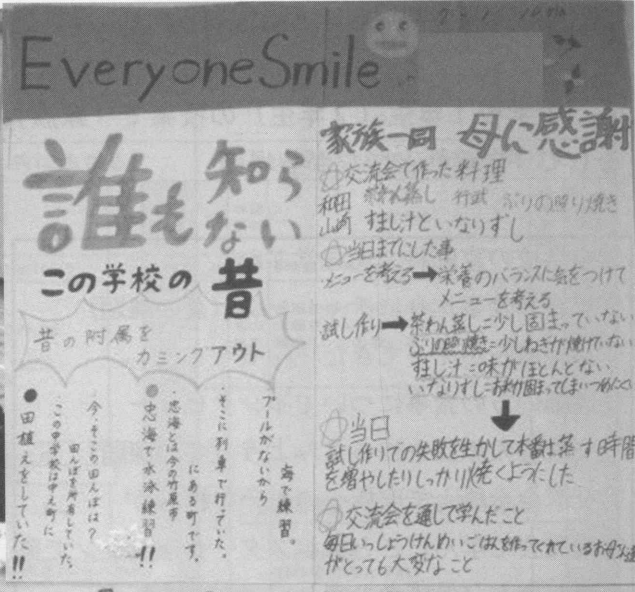 EveryoneSmile
誰も知ら
ない
この学校の昔
昔の附属を
カミングアウト
●田植えをしていた!!
・この中学校は中え町に
田んぼを所有していた。
今、そこの田んぼは?
●忠海で水泳練習!!
・忠海とは今の竹原市
にある町です。
・そこに列車で行っていた。
プールがないから
海で練習。
家族一同 母に感謝
☆交流会で作った料理
和田 茶わん蒸し 行武 ぶりの照り焼き
山崎 すまし汁といなりずし
☆当日までにした事
メニューを考える➡栄養のバランスに気をつけて
メニューを考える
試し作り➡茶わん蒸し=少し固まっていない
ぶりの照り焼き=少しわきが焼けていない
すまし汁=味がほとんどない
いなりずし=
☆当日
試し作りでの失敗を生かして本番は蒸す時間
を増やしたりしっかり焼くようにした
☆交流会を通して学んだこと
毎日いっしょうけんめいごはんを作ってくれているお母さん達
がとっても大変なこと